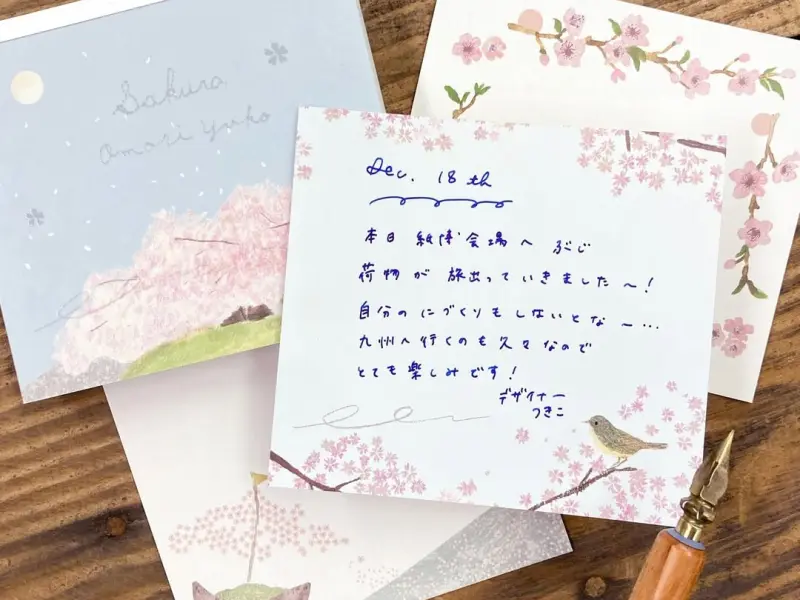 Sakura
Omori Yuko
Dec. 18th
本日 紙博会場へ ぶじ
荷物が 旅出っていきました〜!
自分のにづくりもしないとな〜…
九州へ行くのも久々なので
とても楽しみです!
デザイナー
つきこ